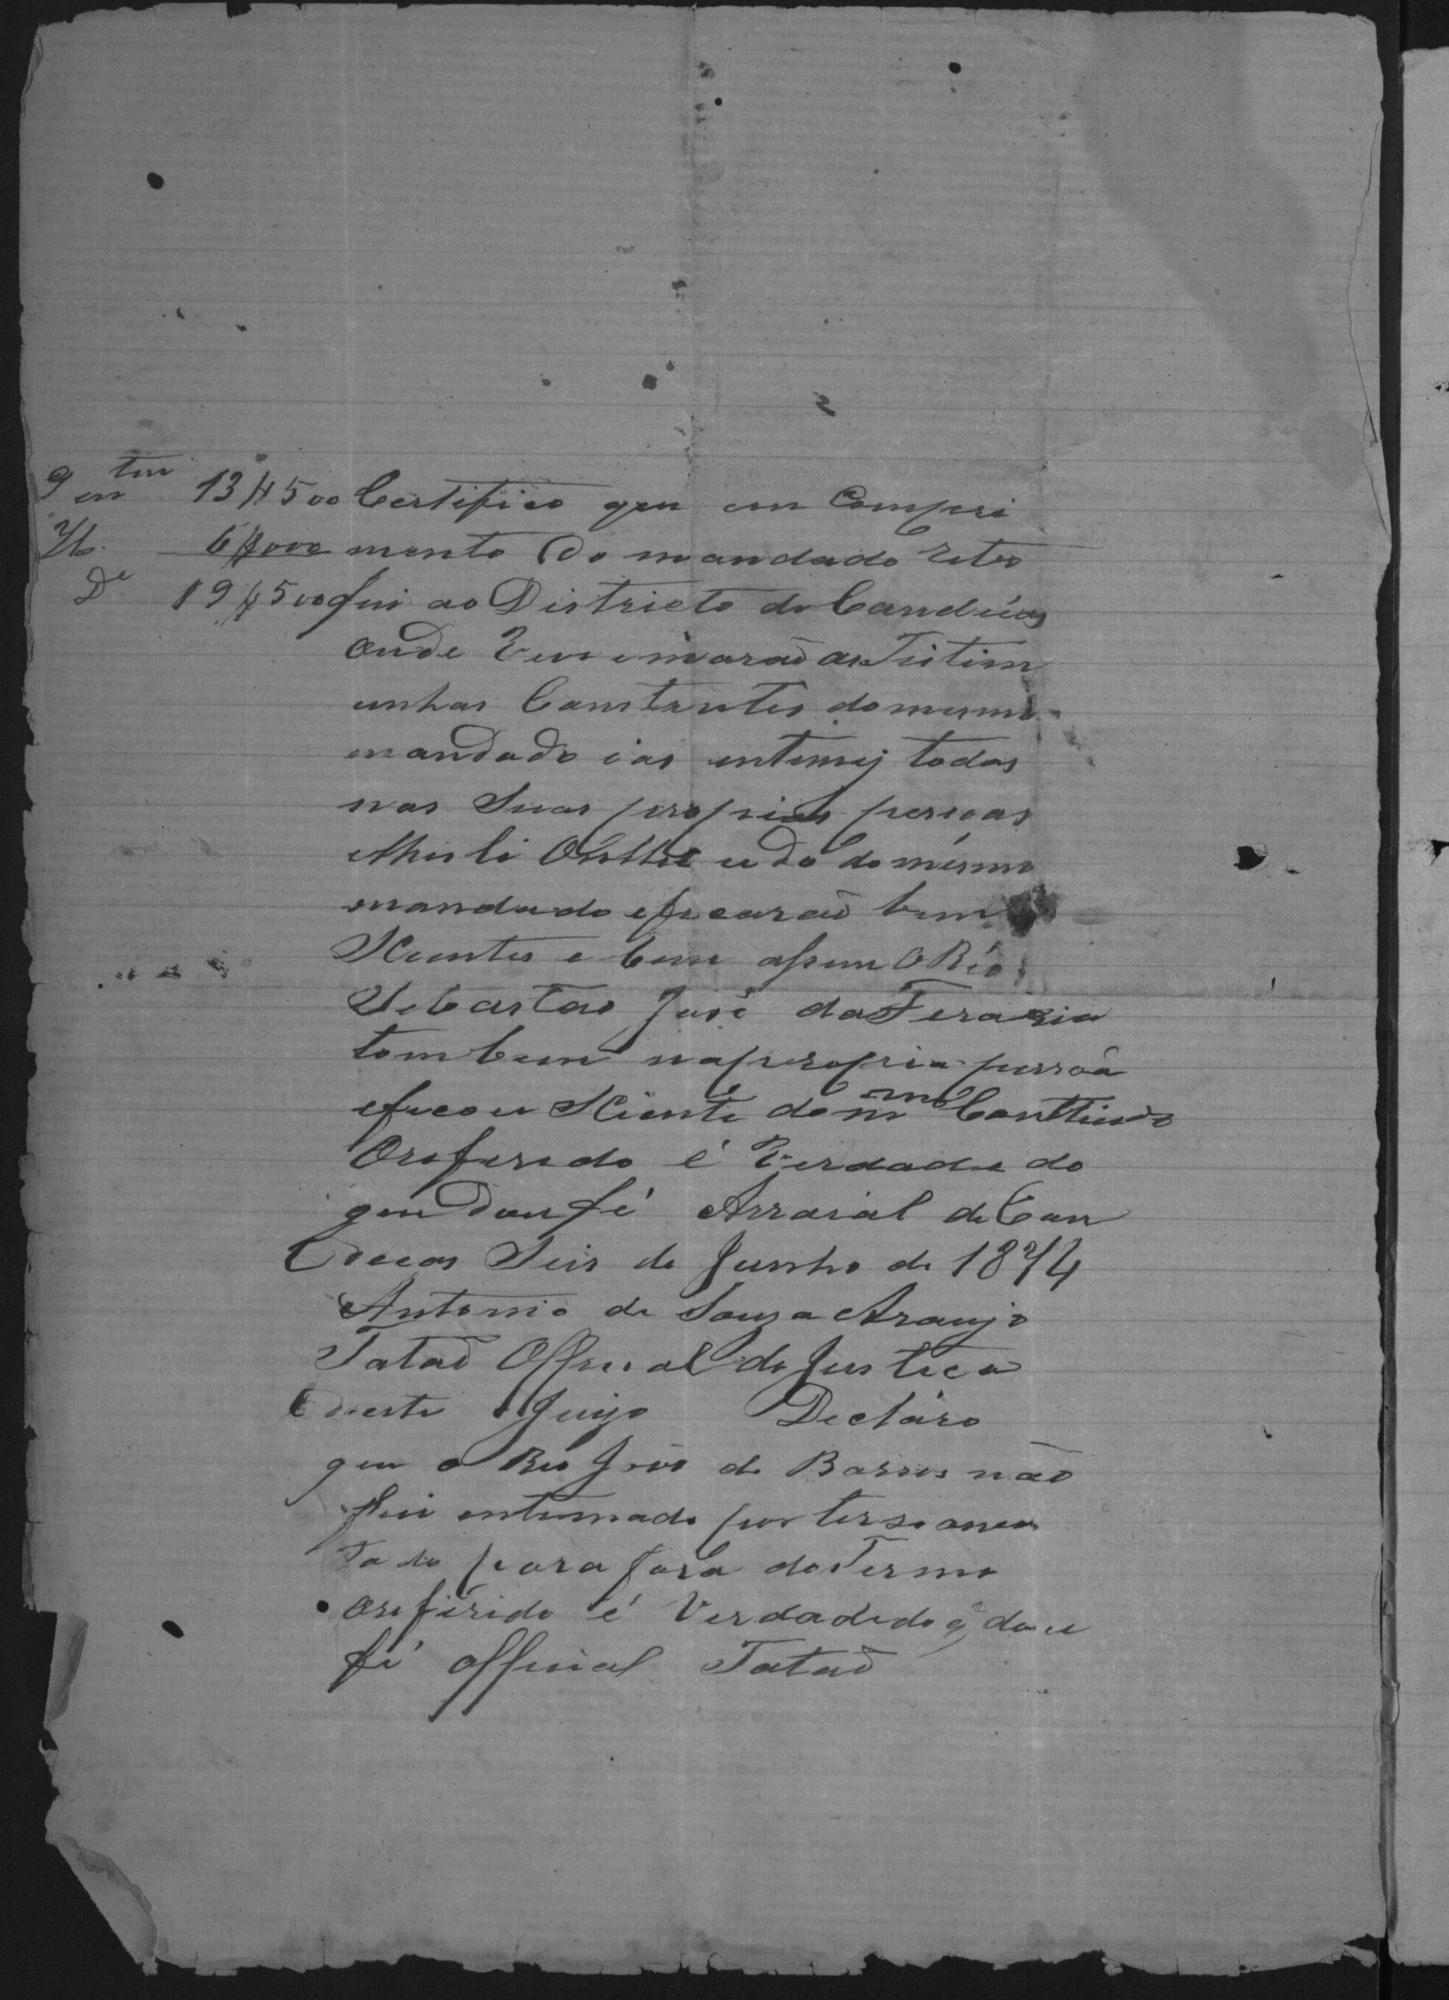 9 en tm 13$500 Certifico que em Compri
6$000 mento do mandado retro
De 19$500 fui ao Districto de Candéas
onde morarão as Tistim
unhas Constantes do mesmo
mandado i as intimej todas
nas Suas propias pesoas
do mesmo
mandado eficarão bem
Scientes e bem assim O Réo
Sebastão José da
tombem napropria pessoa
eficou Sciente do mmo Conttiudo
Oreferido é Verdade do
que Dou fé Arraial de Can
deas Seis de Junho de 1874
Antonio de Souza Araujo
Tatão Official de Justica
deste Juizo Declaro
que o Reo João de Barros não
fui intimado por terse
tado para fora do Termo
oreferido é Verdade do q dou
fé official Tatão